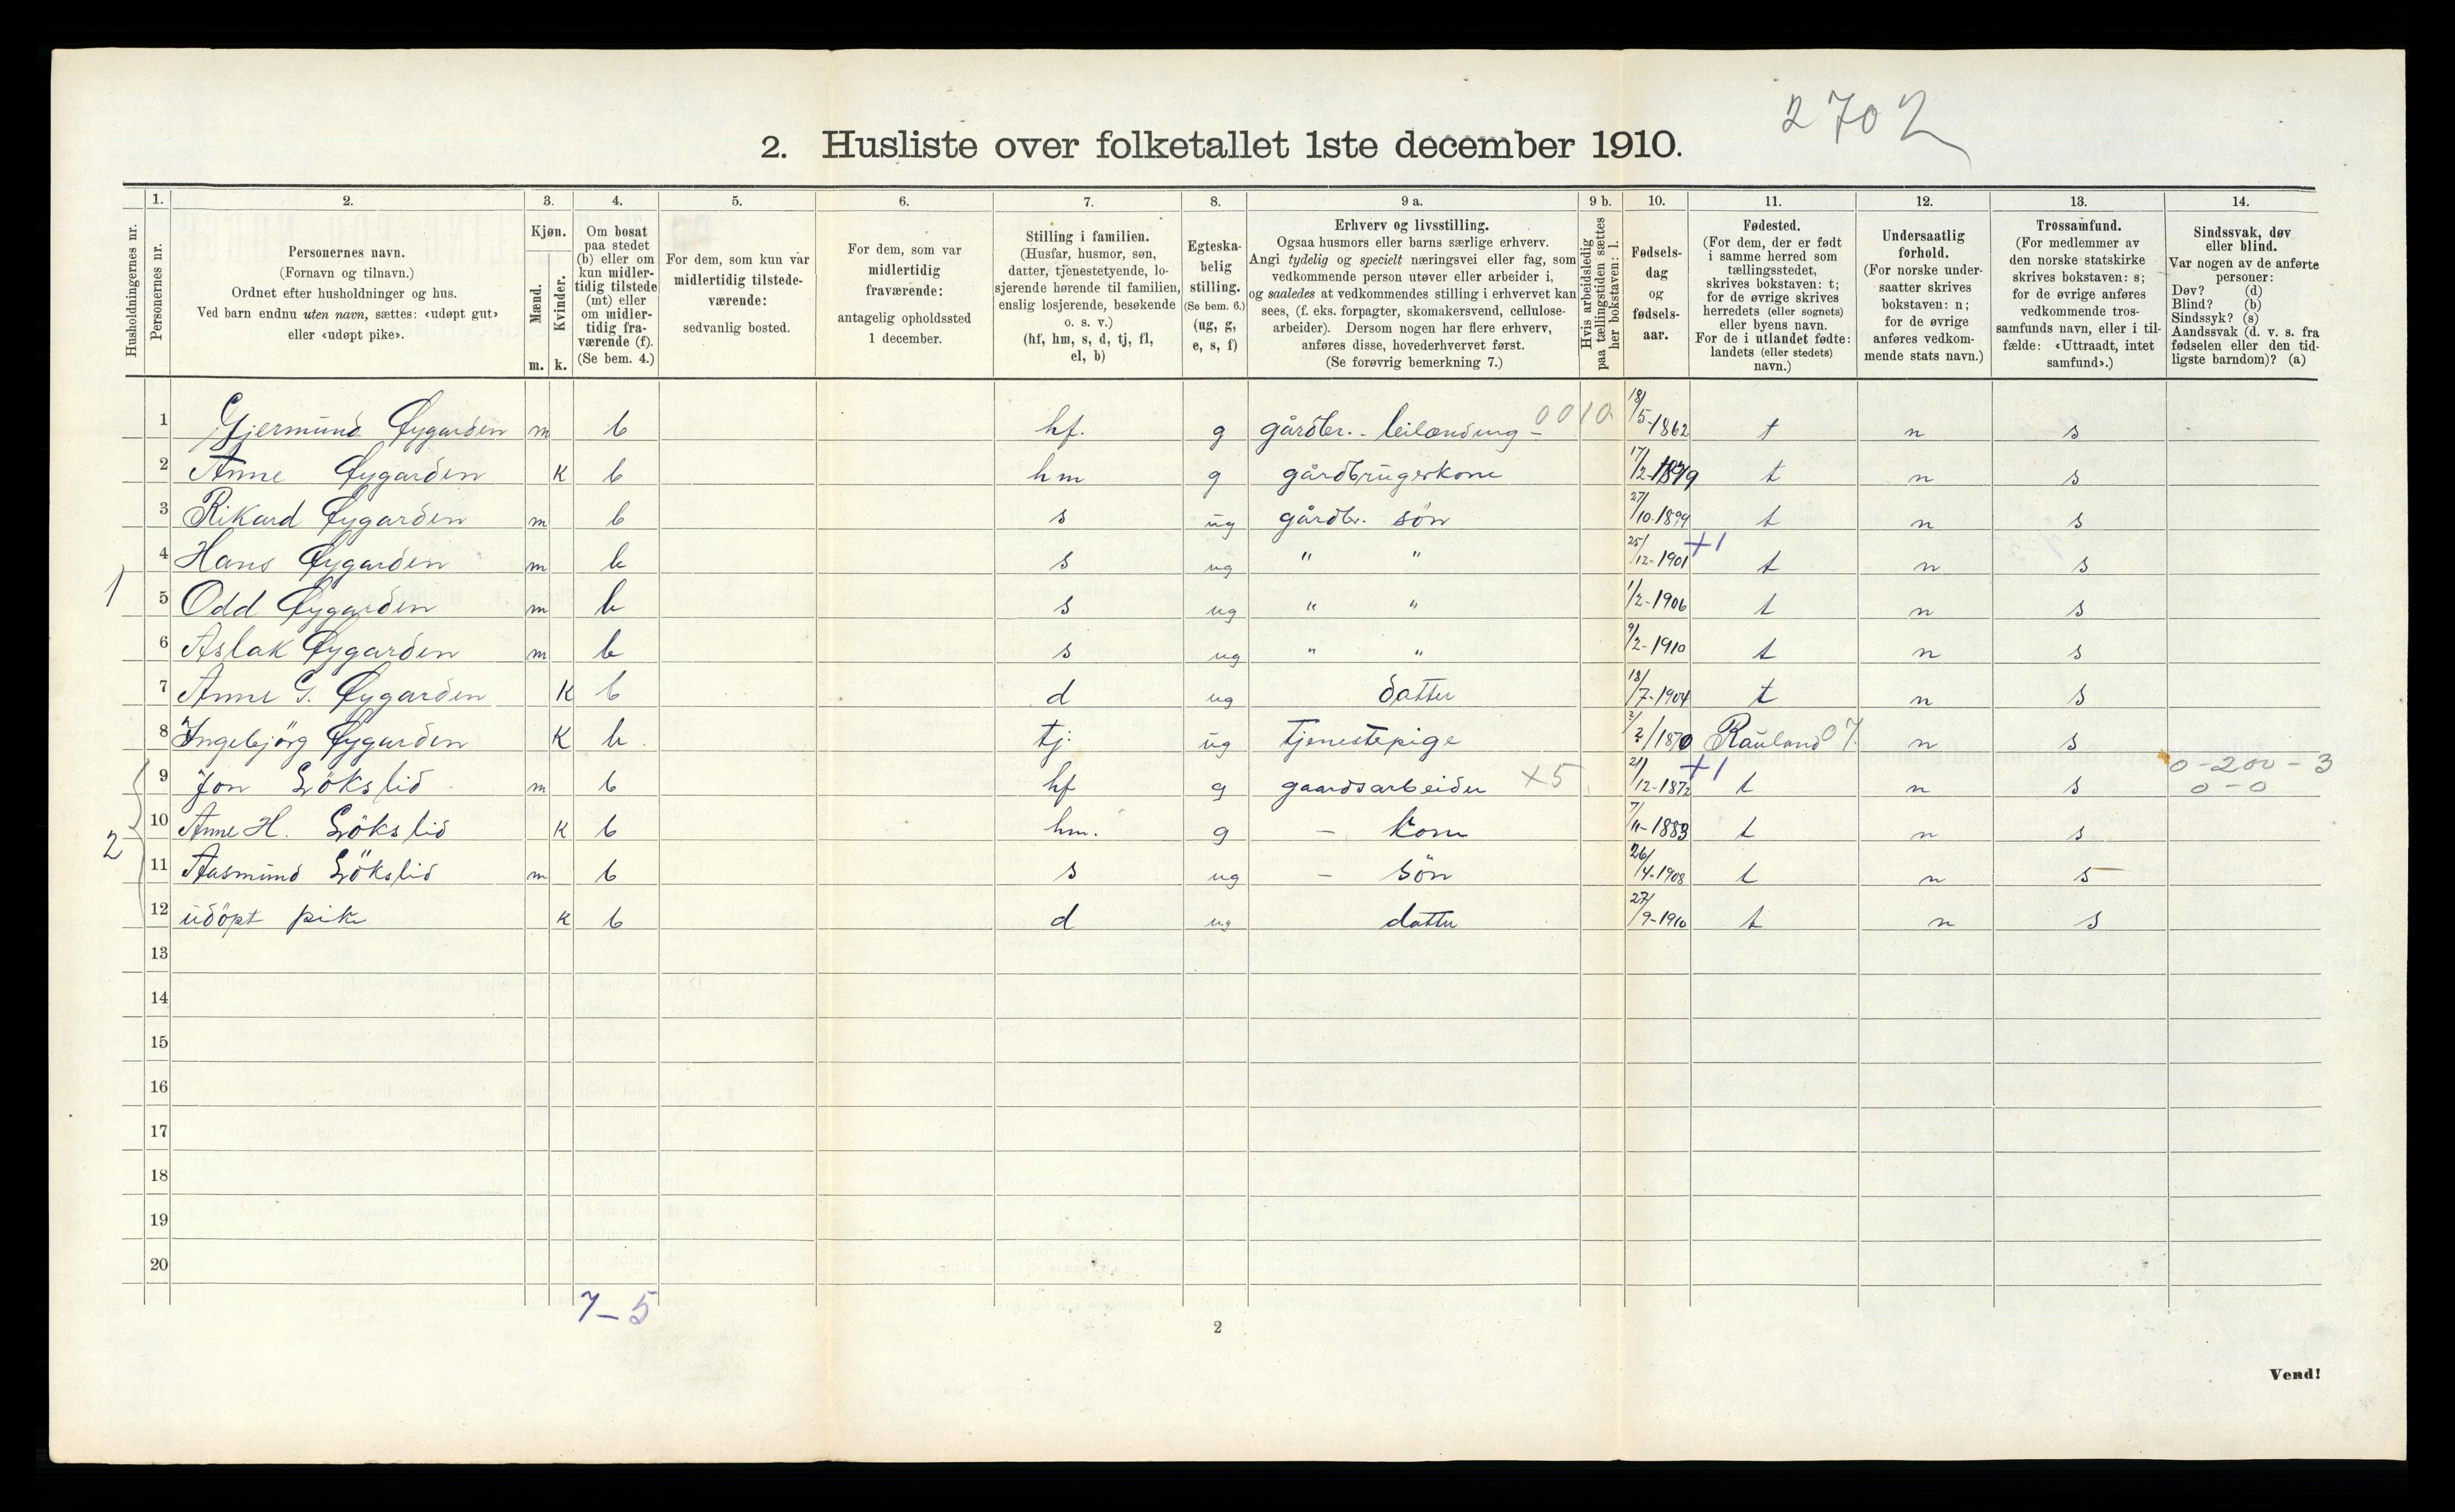 2702
2. Husliste over folketallet 1ste december 1910.
Husholdningernes nr.
1. Personernes nr.
2. Personernes navn. (Fornavn og tilnavn.) Ordnet efter husholdninger og hus. Ved barn endnu uten navn, sættes: «udøpt gut» eller «udøpt pike».
3. Kjøn. Mænd. m. Kvinder. k.
4. Om bosat paa stedet (b) eller om kun midlertidig tilstede (mt) eller om midlertidig fraværende (f). (Se bem. 4.)
5. For dem, som kun var midlertidig tilstedeværende: sedvanlig bosted.
6. For dem, som var midlertidig fraværende: antagelig opholdssted 1 december.
7. Stilling i familien. (Husfar, husmor, søn, datter, tjenestetyende, losjerende hørende til familien, enslig losjerende, besøkende o. s. v.) (hf, hm, s, d, tj, fl, el, b)
8. Egteskabelig stilling. (Se bem. 6.) (ug, g, e, s, f)
9 a. Erhverv og livsstilling. Ogsaa husmors eller barns særlige erhverv. Angi tydelig og specielt næringsvei eller fag, som vedkommende person utøver eller arbeider i, og saaledes at vedkommendes stilling i erhvervet kan sees, (f. eks. forpagter, skomakersvend, cellulosearbeider). Dersom nogen har flere erhverv, anføres disse, hovederhvervet først. (Se forøvrig bemerkning 7.)
9 b. Hvis arbeidsledig paa tællingstiden sættes her bokstaven: l.
10. Fødselsdag og fødselsaar.
11. Fødested. (For dem, der er født i samme herred som tællingsstedet, skrives bokstaven: t; for de øvrige skrives herredets (eller sognets) eller byens navn. For de i utlandet fødte: landets (eller stedets) navn.)
12. Undersaatlig forhold. (For norske undersaatter skrives bokstaven: n; for de øvrige anføres vedkommende stats navn.)
13. Trossamfund. (For medlemmer av den norske statskirke skrives bokstaven: s; for de øvrige anføres vedkommende trossamfunds navn, eller i tilfælde: «Uttraadt, intet samfund».)
14. Sindssvak, døv eller blind. Var nogen av de anførte personer: Døv? (d) Blind? (b) Sindssyk? (s) Aandssvak (d. v. s. fra fødselen eller den tidligste barndom)? (a)
1 Gjermund Øygarden m b hf. g gårdbr. - leilænding - 0010 18/5-1862 t n s
2 Anne Øygarden K b hm g gårdbrugerkone 17/2-1879 t n s
3 Rikard Øygarden m b s ug gårdbr. søn 27/10-1899 t n s
4 Hans Øygarden m b s ug " " 25/12-1901 +1 t n s
1 5 Odd Øygarden m b s ug " " 1/2-1906 t n s
6 Aslak Øygarden m b s ug " " 9/2-1910 t n s
7 Anne G. Øygarden K b d ug datter 18/7-1904 t n s
8 Ingebjörg Øygarden K b. tj. ug Tjenestepige 2/2/1870 Rauland 07 n s
9 Jon Lökslid m b hf g gaardsarbeider ×5 21/12-1872 +1 t n s 0-200-3 0-0
2 10 Anne H. Lökslid K b hm. g - Kone 7/11-1883 t n s
11 Aasmund Lökslid m b s ug - Sön 26/4-1908 t n s
12 udöpt pike K b d ug datter 27/9-1910 t n s
13
14
15
16
17
18
19
20
7-5
2
Vend!